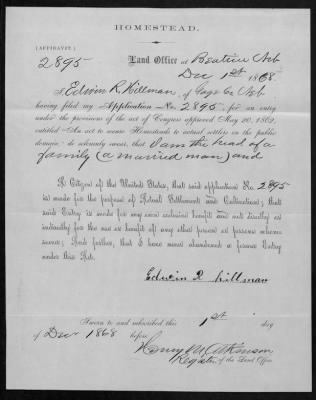 HOMESTEAD.
(AFFIDAVIT.)
2895 Land Office at Beatrice Neb
Dec 1st 1868
I, Edwin R. Hillman, of Gage Co Neb
having filed my Application No. 2895, for an entry
under the provisions of the act of Congress approved May 20, 1862,
entitled "An act to secure Homesteads to actual settlers on the public
domain," do solemnly swear, that I am the head of a
family (a married man) and
A Citizen of the United States, that said application No. 2895
is made for the purpose of Actual Settlement and Cultivation; that
said Entry is made for my own exclusive benefit and not directly or
indirectly for the use or benefit of any other person or persons whom
soever; And further, that I have never abandoned a former Entry
under this Act.
Edwin R Hillman
Sworn to and subscribed this 1st day
of Dec 1868 before
Henry M Atkinson
Register of the Land Office